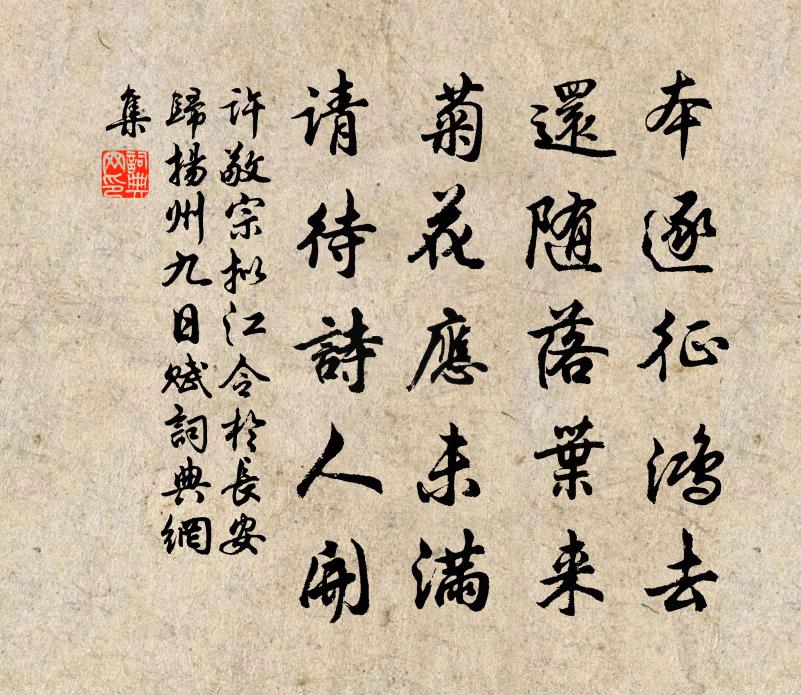 本逐征鴻去
還随落葉来
菊花應未满
请待詩人開
许敬宗拟江令於長安
歸揚州九日赋詞典網
集
詞典
网印